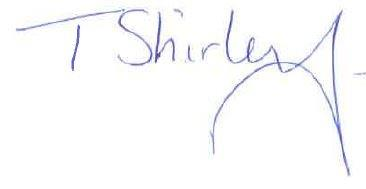 T Shirley